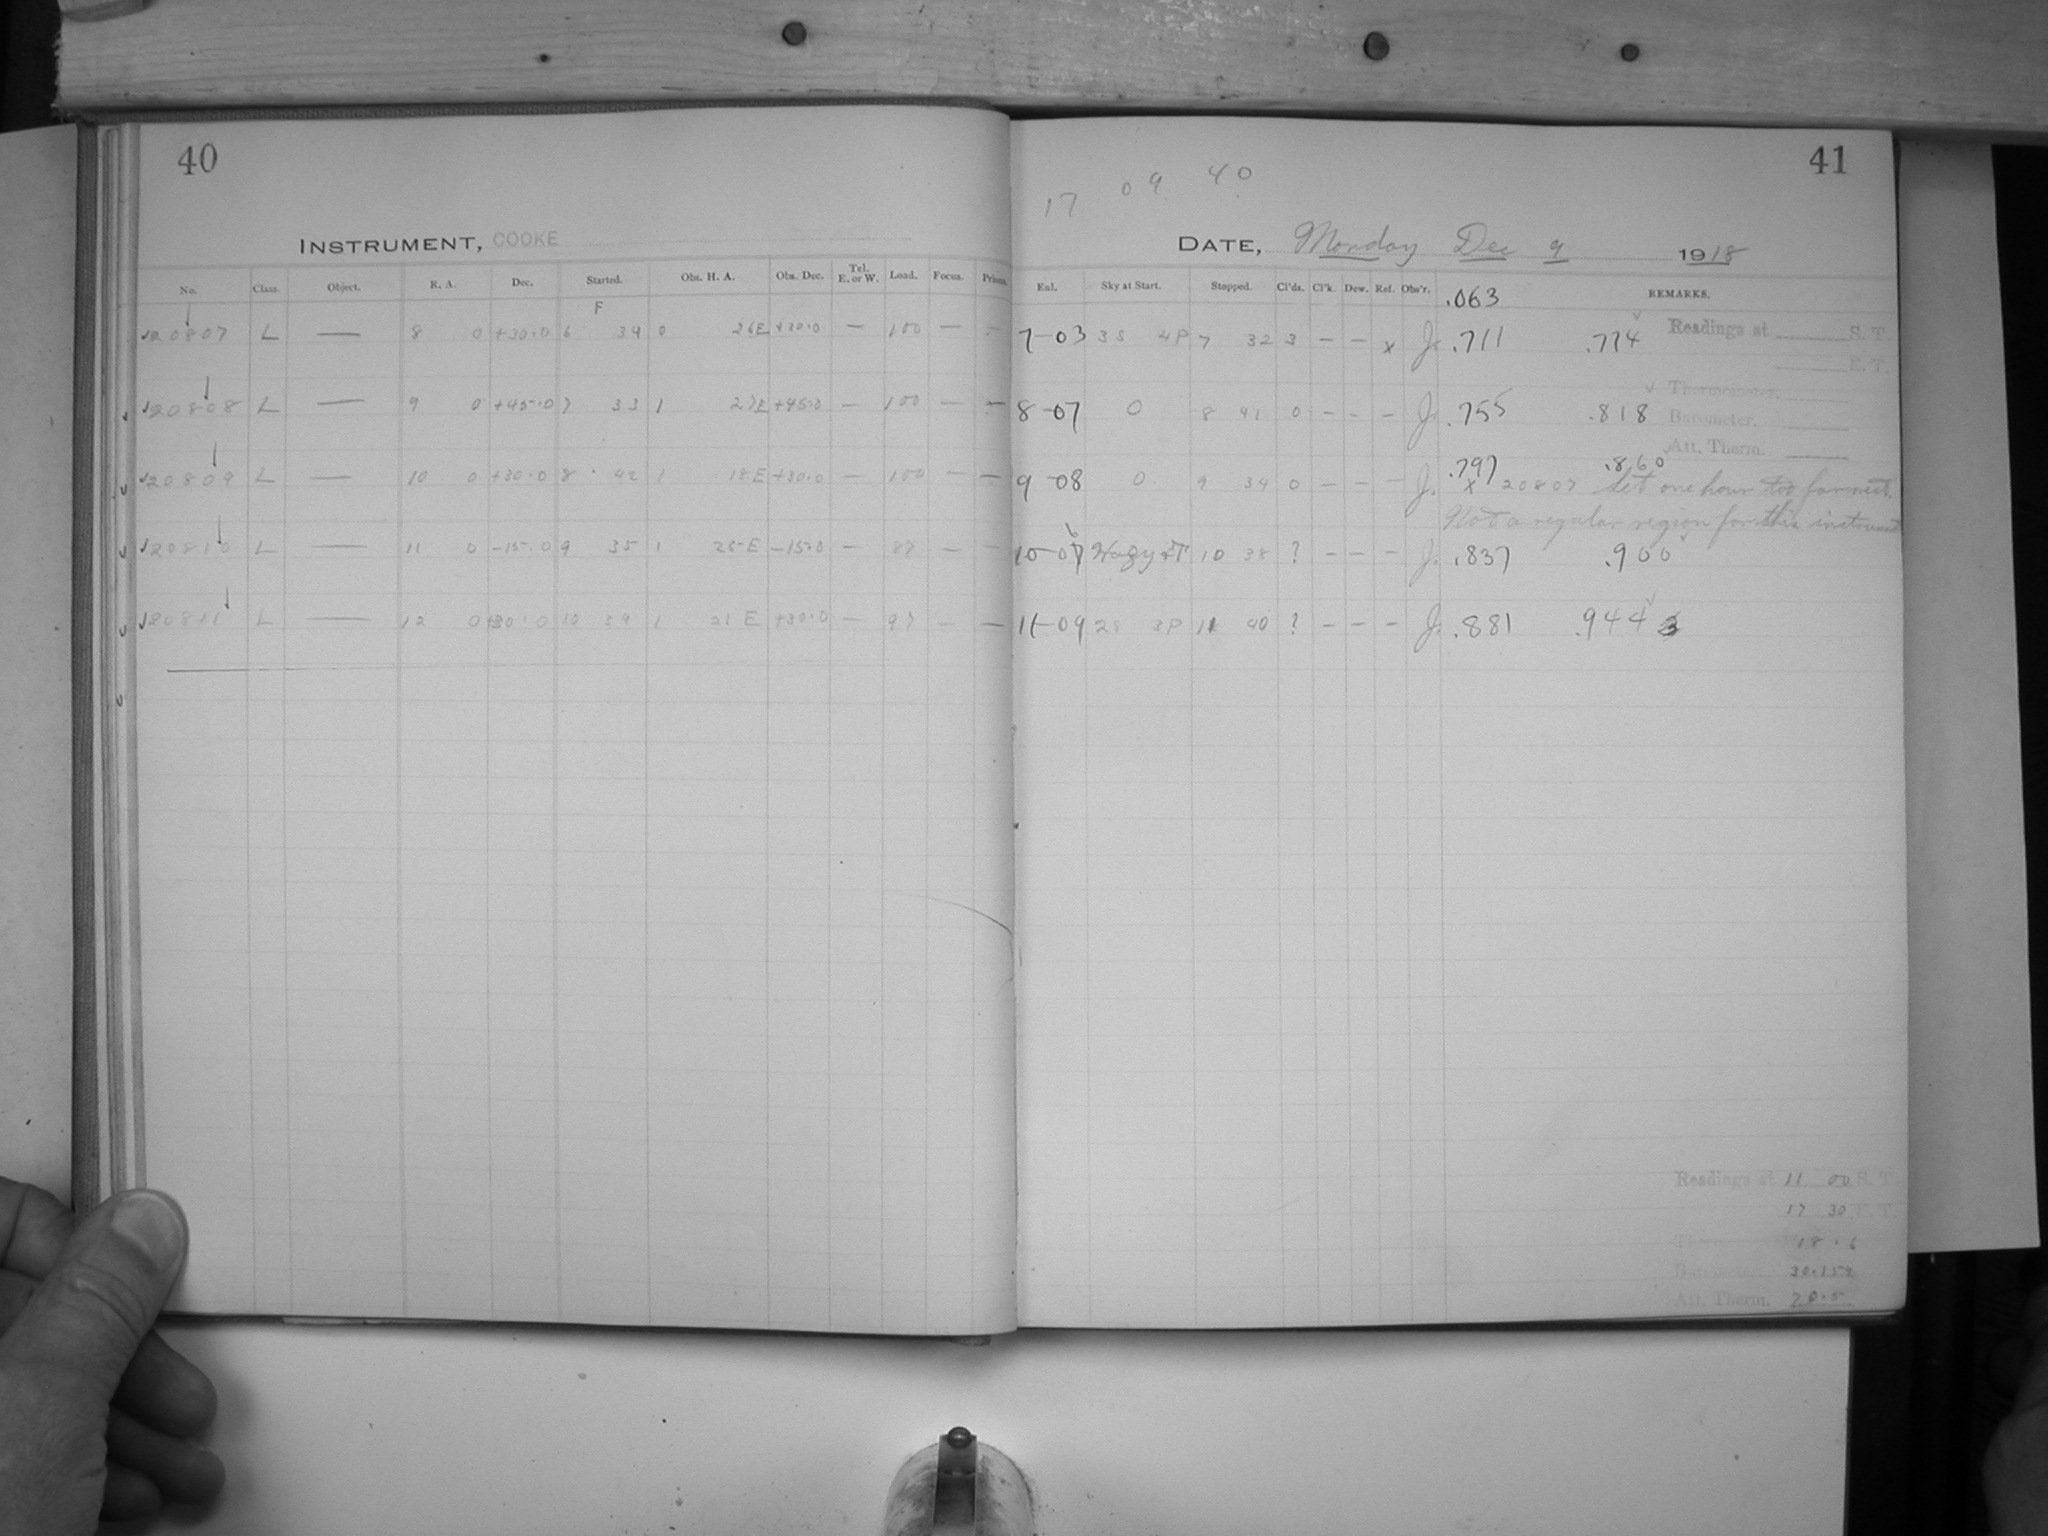 40
INSTRUMENT, COOKE
No. Class. Object. R. A. Dec. Started. Obs. H. A. Obs. Dec. Tel. E. or W. Load. Focus. Prism.
F
20807 L — 8 0 +30.0 6 34 0 26E +30.0 — 100 — —
20808 L — 9 0 +45.0 7 33 1 27E +45.0 — 100 — —
20809 L — 10 0 +30.0 8 42 1 18E +30.0 — 100 — —
20810 L — 11 0 -15.0 9 35 1 25E -15.0 — 87 — —
20811 L — 12 0 +30.0 10 39 1 21E +30.0 — 97 — —
41
17 09 40
DATE, Monday Dec 9 1918
Exl. Sky at Start. Stopped. Cl'ds. Cl'k. Dew. Ref. Obs'r. .063 REMARKS.
7-03 3S 4P 7 32 3 — — x J. .711 .774 Readings at S. T.
E. T.
Thermometer.
8-07 0 8 41 0 - - - J. .755 .818 Barometer.
Att. Therm.
9-08 0 9 34 0 - - - J. .797 .860
x 20807 Set one hour too far west.
Not a regular region for this instrument
10-07 Hazy 10 38 ? - - - J. .837 .900
11-09 2S 3P 11 40 ? - - - J. .881 .944
Readings at 11 00 S. T.
17 30 E. T.
18.6
Barometer 30.154
Att. Therm. 20.5